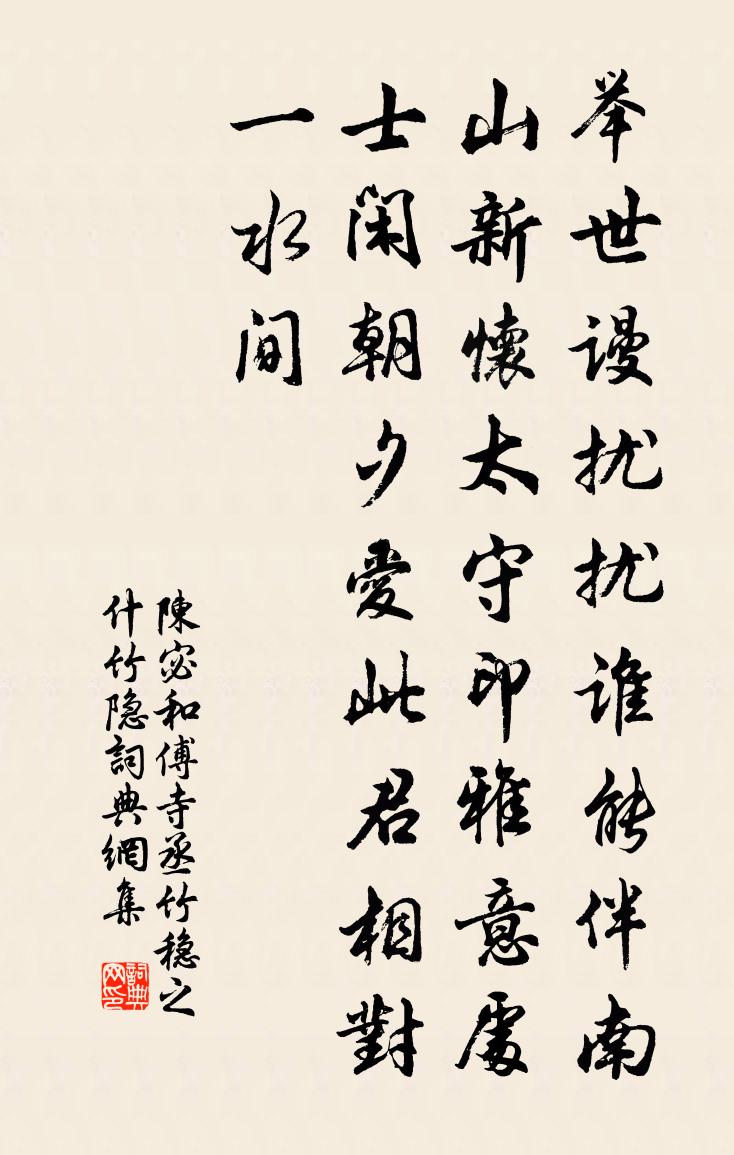 举世谩扰扰谁能伴南
山新懷太守印雅意處
士闲朝夕愛此君相對
一水间
陳宓和傅寺丞竹穏之
什竹隐詞典網集
詞典网印